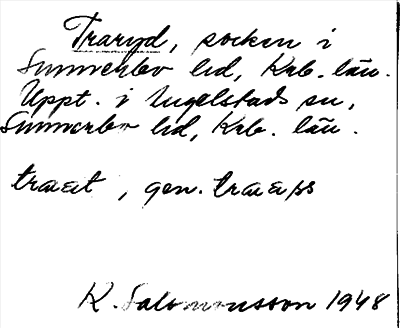 Traryd, socken i
Sunnerbo hd, Krb. län.
Uppt. i Angelstads sn,
Sunnerbo hd, Krb. län.
traat, gen. traaps
K. Salomonsson 1948